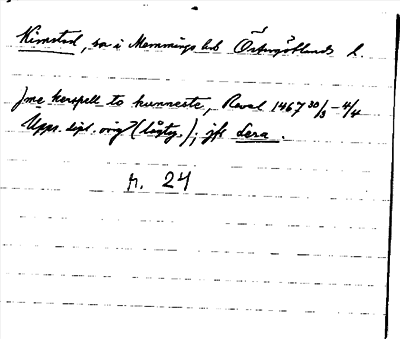 Kimstad, sn i Memmings hd Östergötlands l.
jme kerspell to kunneste, Reval 1467 30/3 - 4/4
Upps. dipl. orig (lågty.); jfr Lera.
r. 24